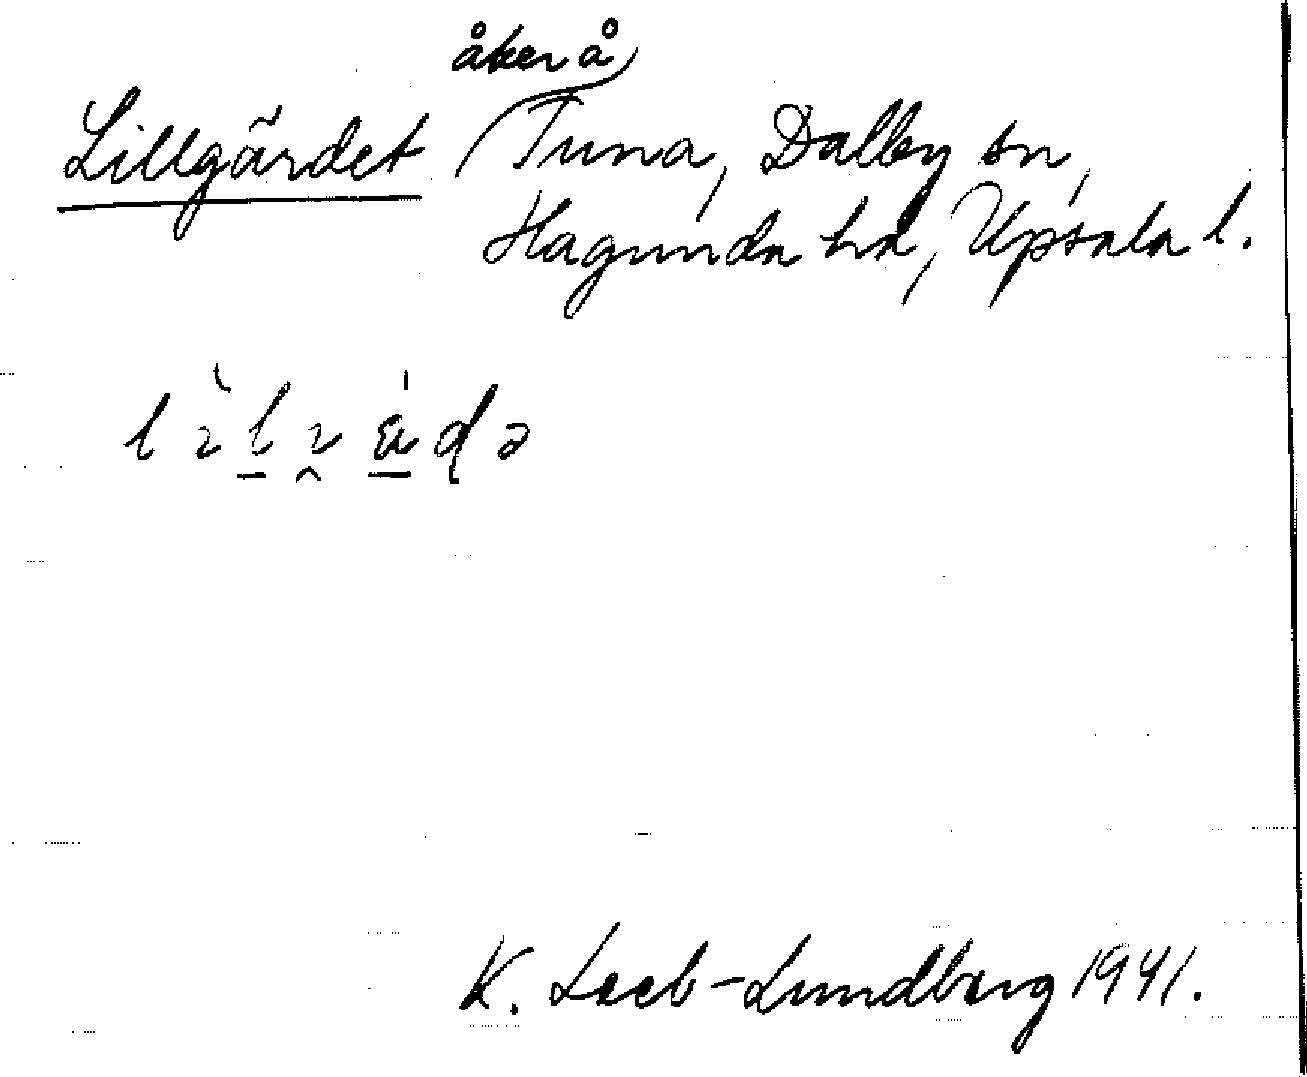 åker å
Lillgärdet Tuna, Dalby sn,
Hagunda hd, Upsala l.
K. Leeb-Lundberg 1941.